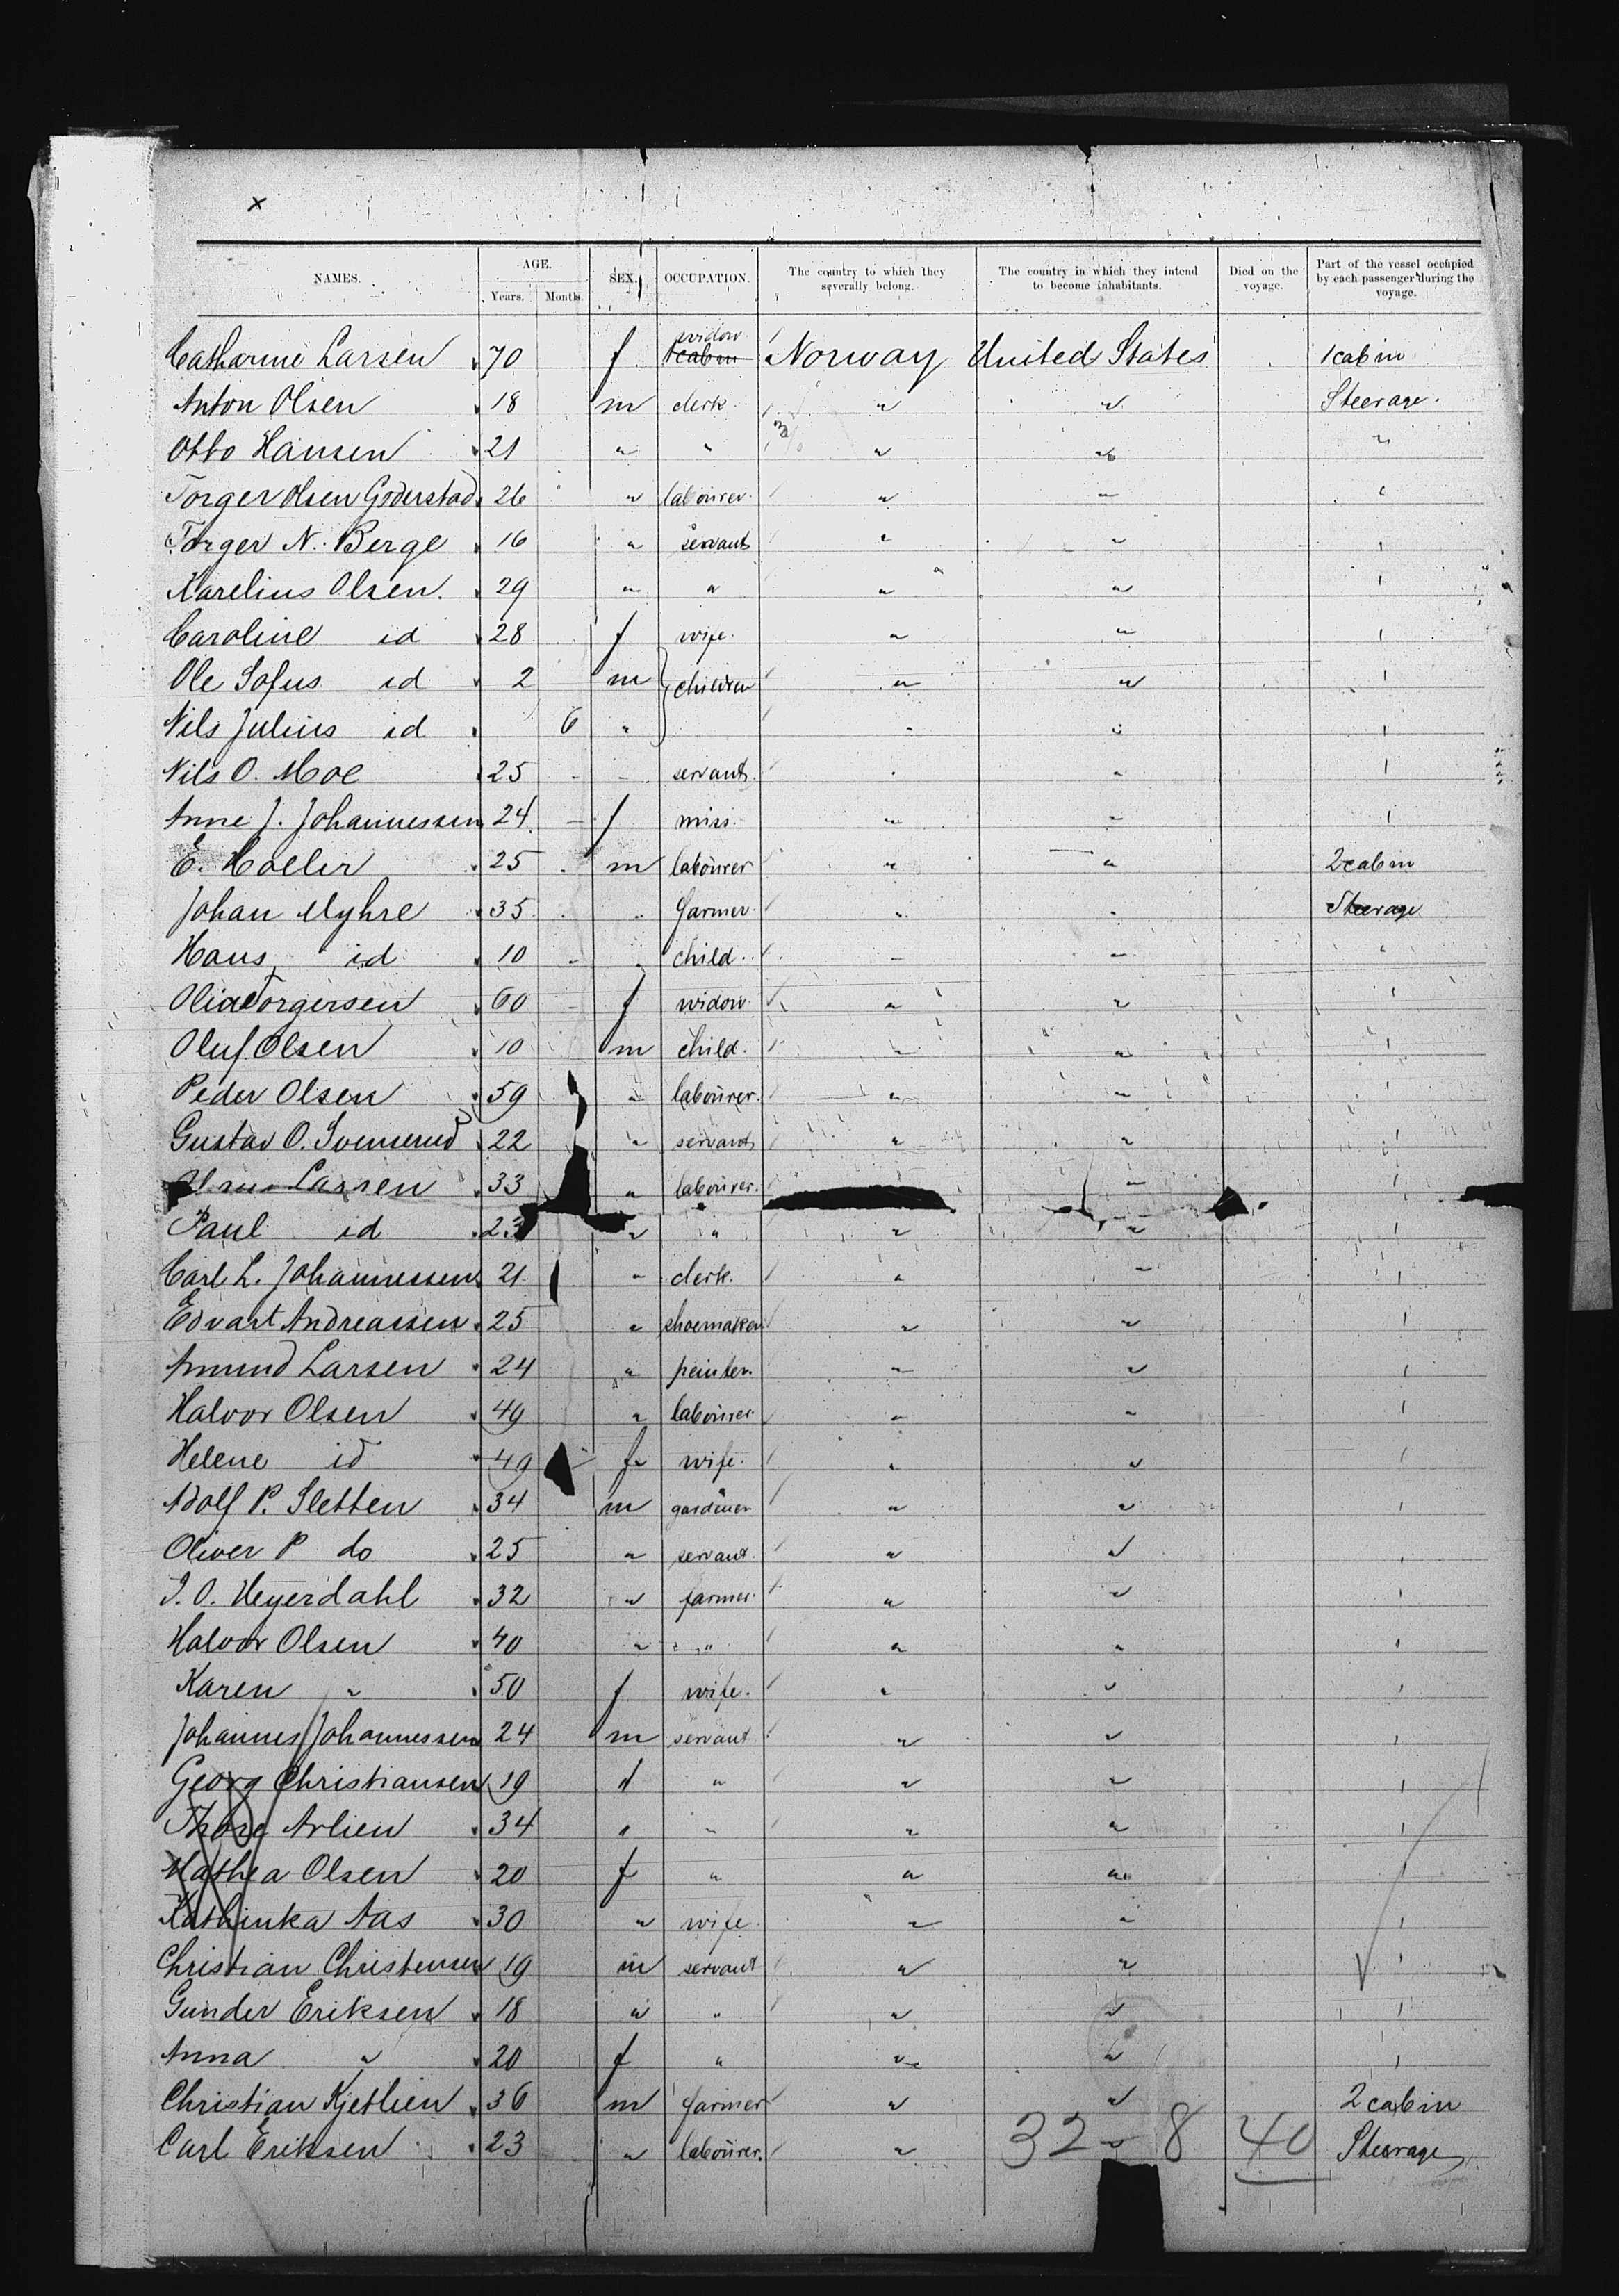 x
NAMES. AGE. SEX. OCCUPATION. The country to which they severally belong. The country in which they intend to become inhabitants. Died on the voyage. Part of the vessel occupied by each passenger during the voyage.
Years. Months.
widow
Catharine Larsen 70 f 1cabin Norway United States 1cabin
Anton Olsen 18 m clerk " " Steerage.
Otto Hansen 21 " " " " "
Torger Olsen Goderstad 26 " labourer " " "
Torger N. Berge 16 " servant " " "
Karelius Olsen. 29 " " " " "
Caroline id 28 f wife " " "
Ole Sofus id 2 m children " " "
Nils Julius id 6 " " " "
Nils O. Moe 25 " servant " " "
Anne J. Johannessen 24 f miss " " "
E. Holler 25 m labourer " " 2cabin
Johan Myhre 35 " farmer " " Steerage
Hans id 10 " child " " "
Olia Torgersen 60 f widow " " "
Oluf Olsen 10 m child. " " "
Peder Olsen 59 " labourer. " " "
Gustav O. Svenserud 22 " servant " " "
Larsen 33 " labourer. " "
Paul id 23 " " " " "
Carl L. Johannessen 21 " clerk. " " "
Edvart Andreassen 25 " shoemaker " " "
Amund Larsen 24 " peinter. " " "
Halvor Olsen 49 " labourer " " "
Helene id 49 f wife " " "
Adolf P. Sletten 34 m gardener " " "
Oliver P do 25 " servant. " " "
I. O. Heyerdahl 32 " farmer " " "
Halvor Olsen 40 " " " " "
Karen " 50 f wife. " " "
Johannes Johannessen 24 m servant " " "
Georg Christiansen 19 " " " " "
Thore Arlien 34 " " " " "
Mathea Olsen 20 f " " " "
Kathinka Aas 30 " wife " " "
Christian Christensen 19 m servant " " "
Gunder Eriksen 18 " " " " "
Anna " 20 f " " " "
Christian Kjetlien 36 m farmer " " 2 cabin
Carl Eriksen 23 " labourer. " " Steerage
32 8 40